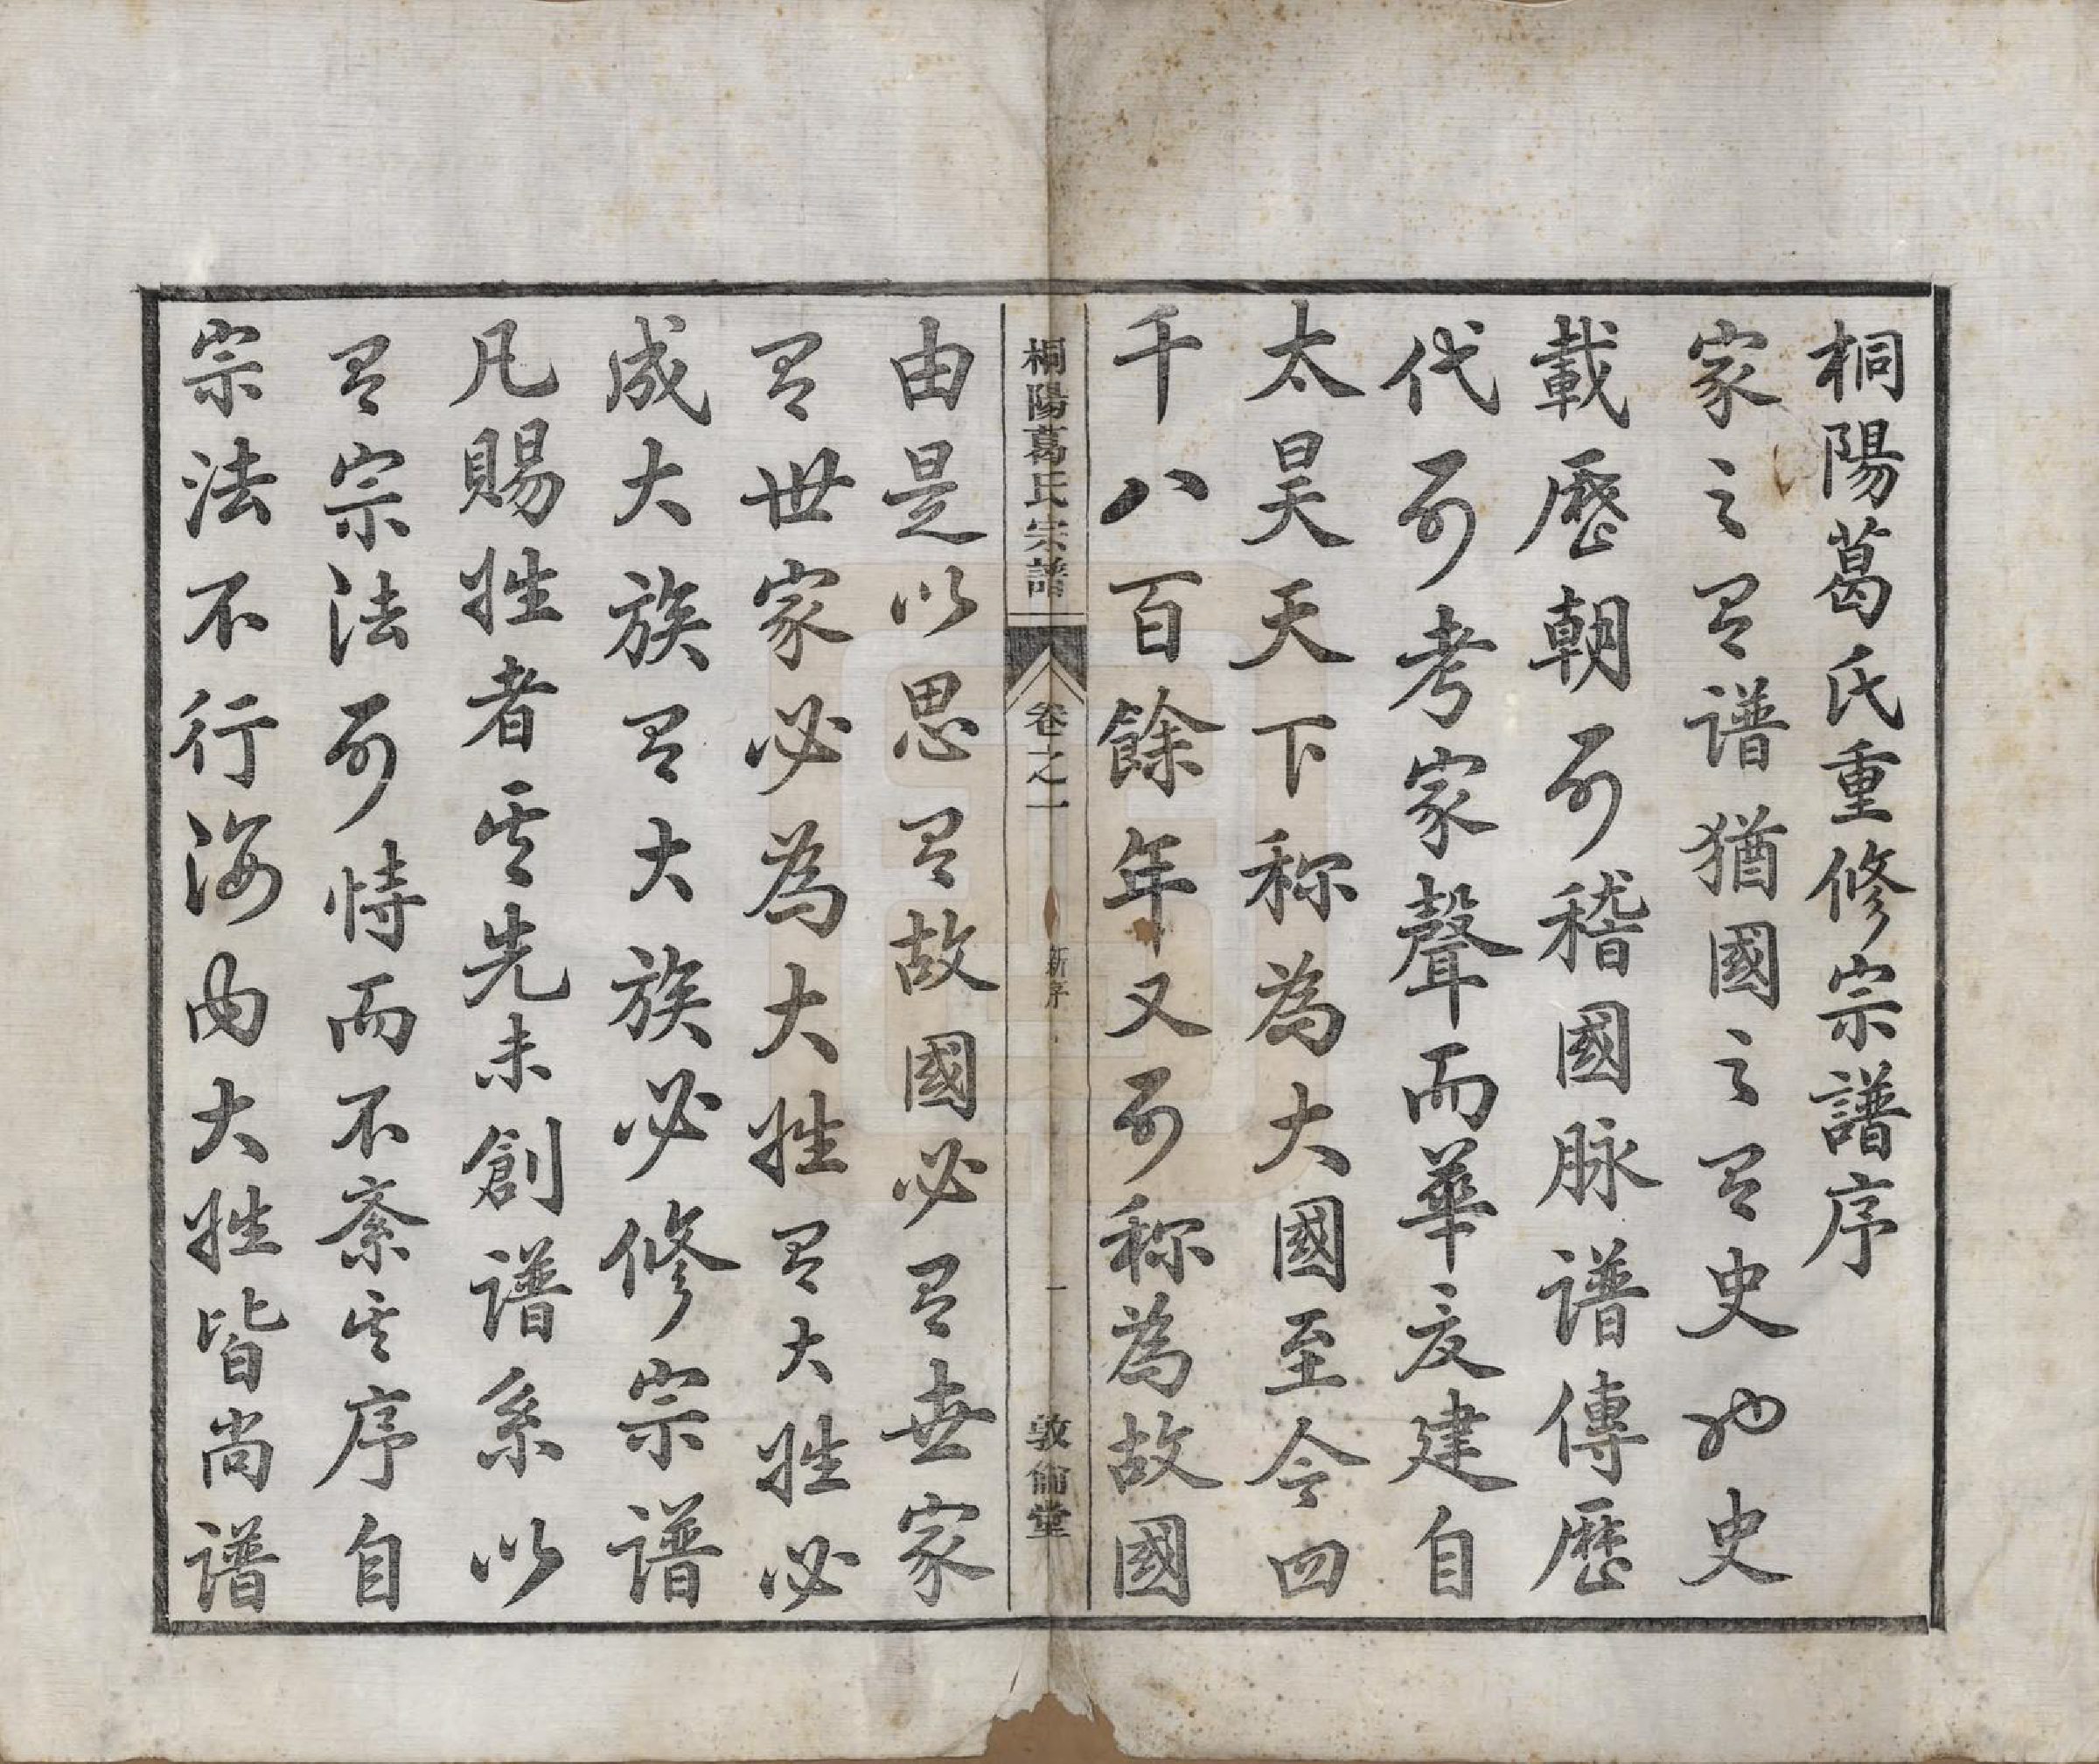 桐陽葛氏重修宗譜序
家之有譜猶國之有史也史
載歷朝可稽國脉譜傳歷
代可考家聲而華亥建自
太昊天下称為大國至今四
千八百餘年又可称為故國
桐陽葛氏宗譜
卷之一
新序
一
敦倫堂
由是以思有故國必有世家
有世家必為大姓有大姓必
成大族有大族必修宗譜
凡賜姓者其先未創譜系以
有宗法可恃而不紊其序自
宗法不行海內大姓皆尚譜